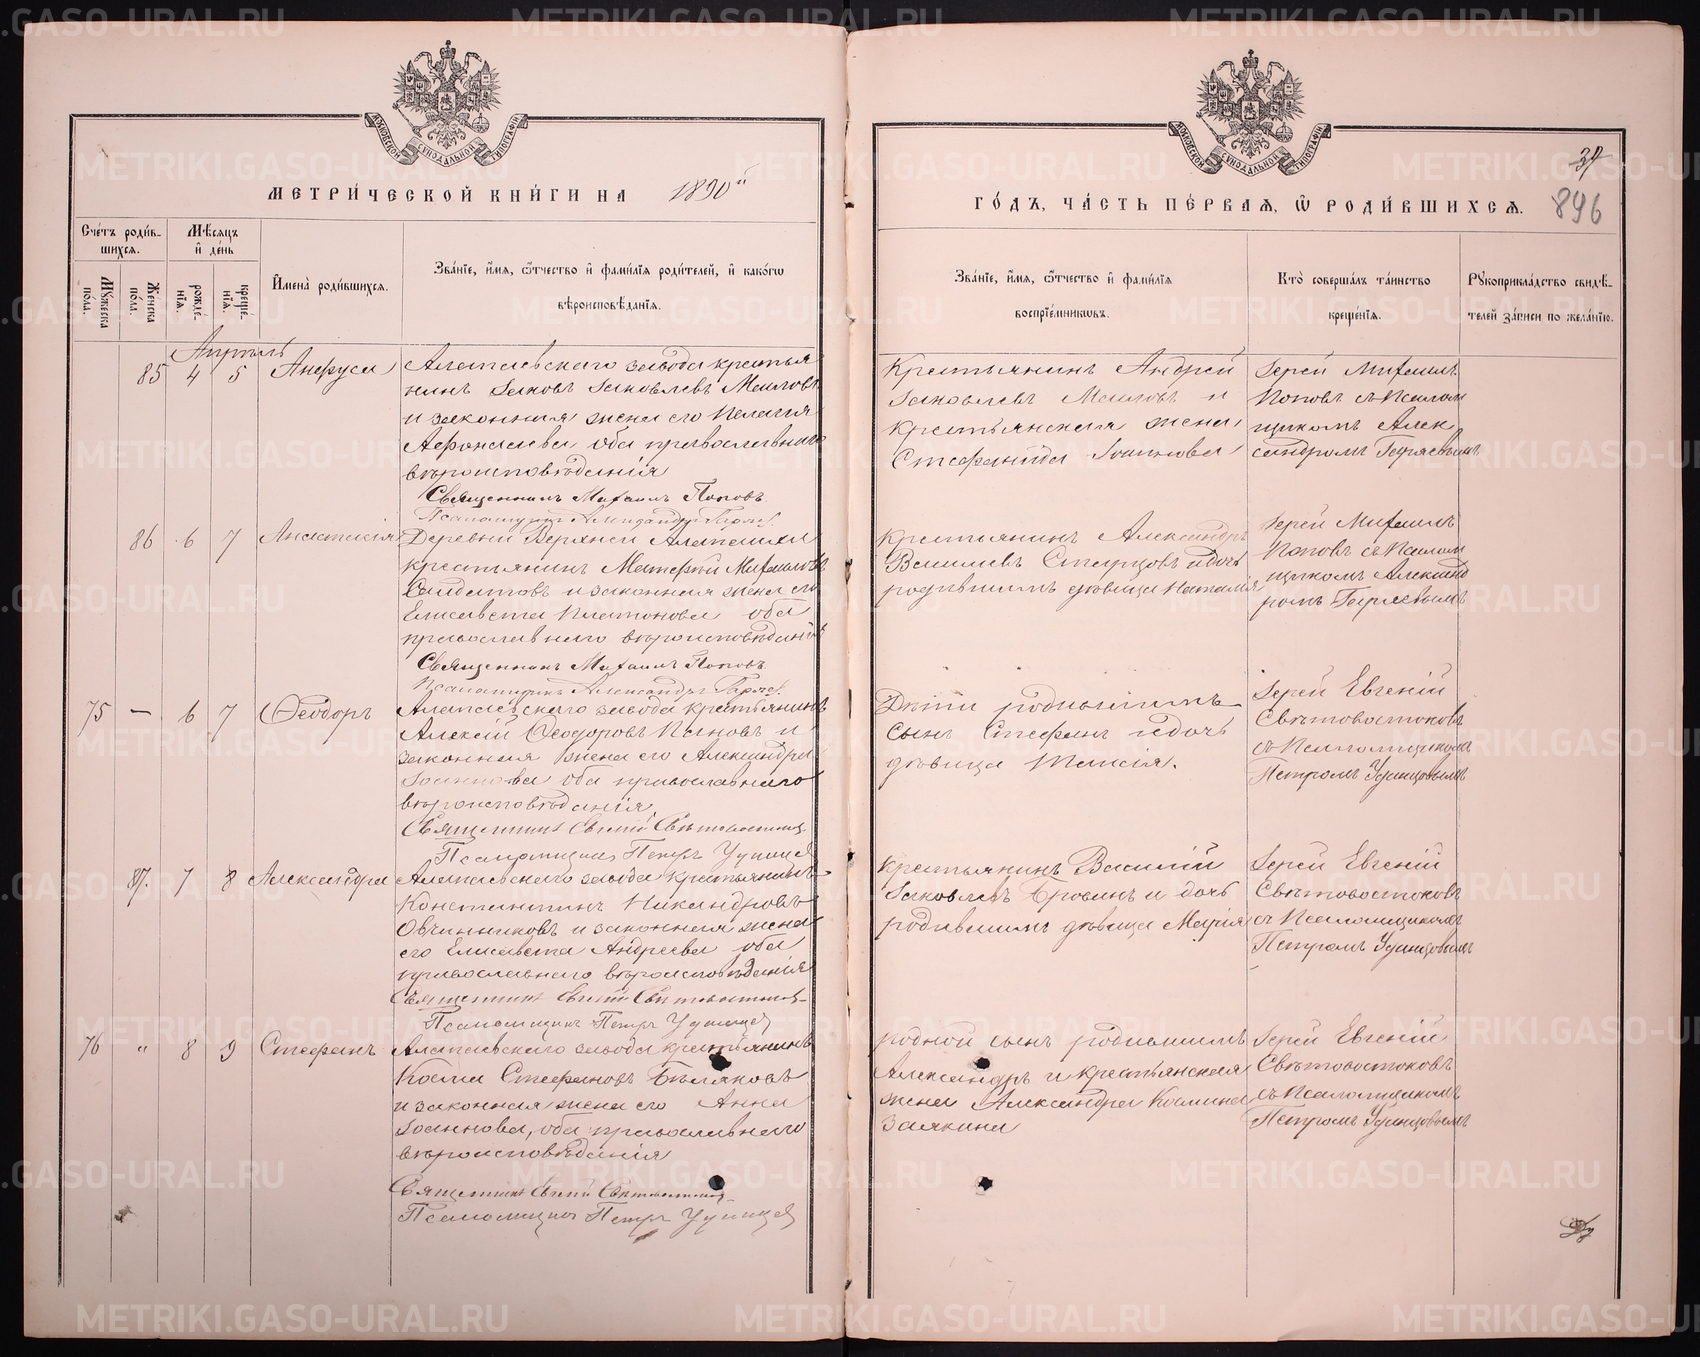 МЕТРИ́ЧЕСКОЙ КНИ́ГИ НА 1890й
Сче́тъ роди́в-
шихся.
Мѣ́сяцъ
и҆ де́нь
Му́жеска
по́ла.
Же́нска
по́ла.
рожде́-
нїя.
креще́-
нїя.
И҆мена̀ роди́вшихся.
Зва́нїе, и҆́мя, ѻ҆́тчество и҆ фами́лїя роди́телей, и҆ како́гѡ
вѣроисповѣ́данїя.
Апрѣль
85 4 5 Анфуса
Алапаевскаго завода крестья
нинъ Іаковъ Іаковлевъ Маиловъ
и законная жена его Пелагія
Афонасьева оба православнаго
вѣроисповѣданія
Священникъ Михаилъ Поповъ
86 6 7 Анастасія
Деревни Верхней Алапаихи
крестьянинъ Матфей Михаиловъ
Солдатовъ и законная жена его
Елисавета Платонова оба
православнаго вѣроисповѣданія
Священникъ Михаилъ Поповъ
75 — 6 7 Ѳеодоръ
Алапаевскаго завода крестьянинъ
Алексій Ѳеодоровъ Пановъ и
законная жена его Александра
Іоаннова оба православнаго
вѣроисповѣданія
Священникъ Евгеній Свѣтовостоковъ
Псаломщикъ Петръ Удинцевъ
87. 7 8 Александра
Алапаевскаго завода крестьянинъ
Константинъ Никандровъ
Овчинниковъ и законная жена
его Елисавета Андреева оба
православнаго вѣроисповѣданія
Священникъ Евгеній Свѣтовостоковъ
Псаломщикъ Петръ Удинцевъ
76 " 8 9 Стефанъ
Алапаевскаго завода крестьянинъ
Косма Стефановъ Бѣляковъ
и законная жена его Анна
Іоаннова, оба православнаго
вѣроисповѣданія
Священникъ Евгеній Свѣтовостоковъ
Псаломщикъ Петръ Удинцевъ
34
896
ГО́ДЪ, ЧА́СТЬ ПЕ́РВАЯ, Ѡ҆ РОДИ́ВШИХСЯ.
Зва́нїе, и҆́мя, ѻ҆́тчество и҆ фами́лїя
воспрїе́мникѡвъ.
Кто̀ соверша́лъ та́инство
креще́нїя.
Рꙋкоприкла́дство свидѣ́-
телей за́писи по жела́нїю.
Крестьянинъ Андрей
Іаковлевъ Маиловъ и
крестьянская жена
Стефанида Іоаннова
Іерей Михаилъ
Поповъ съ Псалом
щикомъ Алек
сандромъ
Крестьянинъ Александръ
Васильевъ Старцовъ и дочь
родившимъ дѣвица Наталія
Іерей Михаилъ
Поповъ съ Псалом
щикомъ Александ
ромъ
Дѣти родившимъ
сынъ Стефанъ и дочь
дѣвица Таисія.
Іерей Евгеній
Свѣтовостоковъ
съ Псаломщикомъ
Петромъ Удинцовымъ
Крестьянинъ Василій
Іаковлевъ и дочь
родившимъ дѣвица Марія
Іерей Евгеній
Свѣтовостоковъ
съ Псаломщикомъ
Петромъ Удинцовымъ
Родной сынъ родившимъ
Александръ и крестьянская
жена Александра Космина
Заякина
Іерей Евгеній
Свѣтовостоковъ
съ Псаломщикомъ
Петромъ Удинцовымъ
METRIKI.GASO-URAL.RU